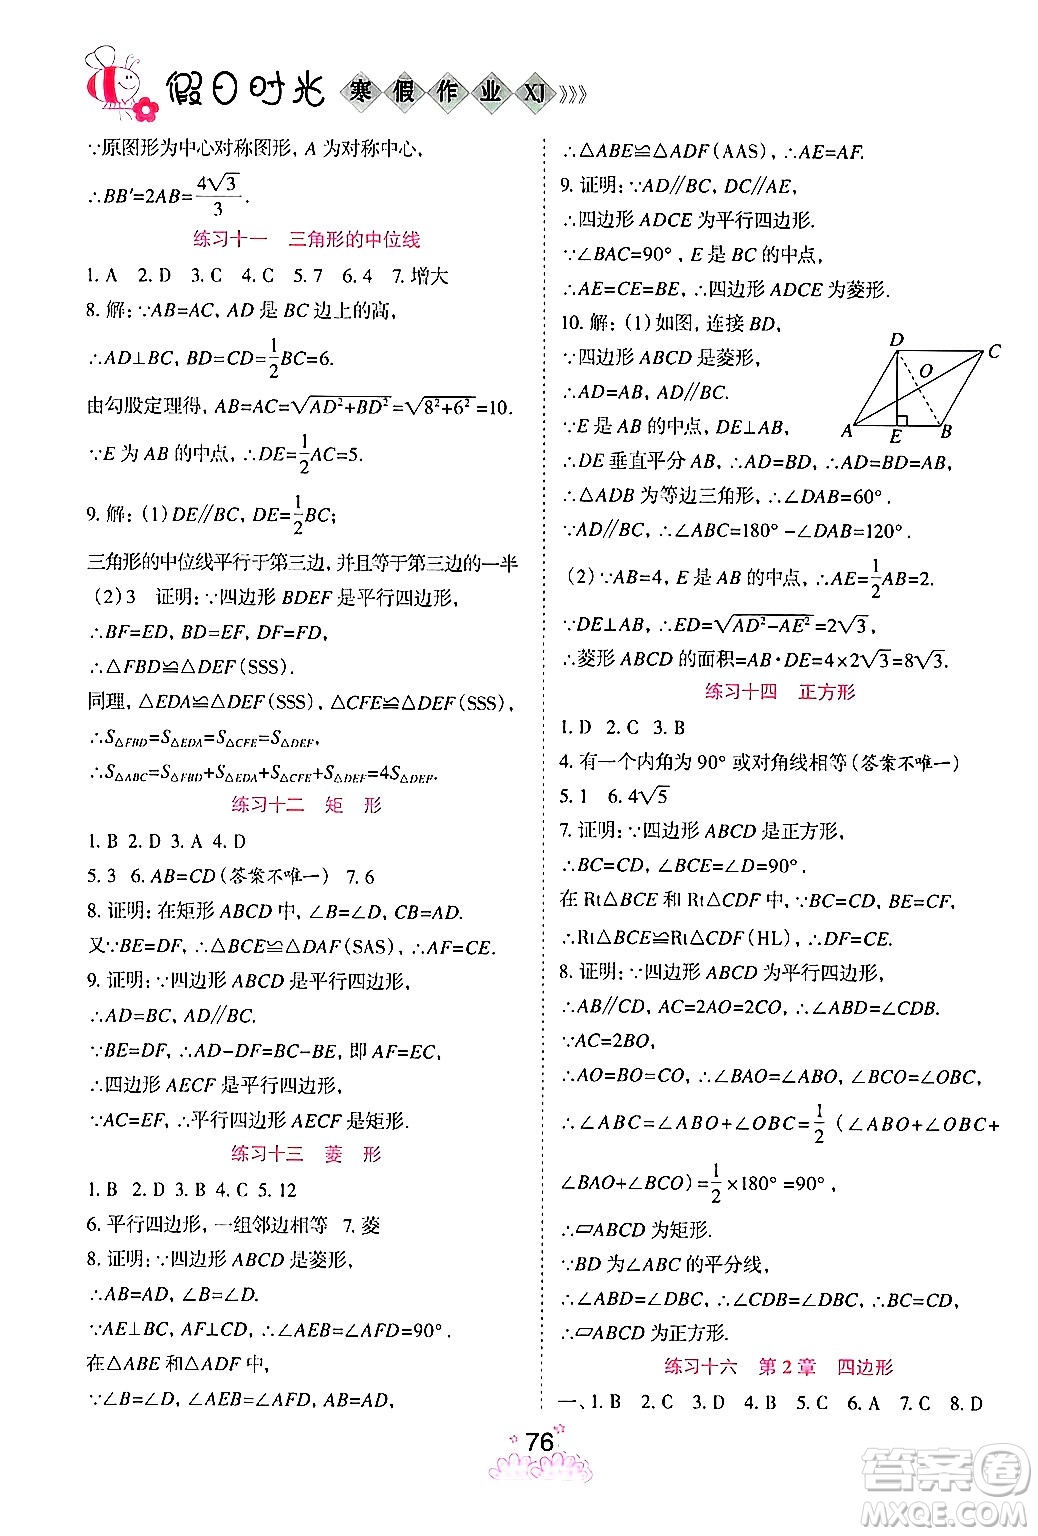 假日时光 寒假作业 XJ 》》》
∵原图形为中心对称图形，A 为对称中心，
∴BB′=2AB=4√3/3.
练习十一　三角形的中位线
1. A　2. D　3. C　4. C　5. 7　6. 4　7. 增大
8. 解：∵AB=AC，AD 是 BC 边上的高，
∴AD⊥BC，BD=CD=1/2BC=6.
由勾股定理得，AB=AC=√(AD²+BD²)=√(8²+6²)=10.
∵E 为 AB 的中点，∴DE=1/2AC=5.
9. 解：(1)DE∥BC，DE=1/2BC；
三角形的中位线平行于第三边，并且等于第三边的一半
(2)3　证明：∵四边形 BDEF 是平行四边形，
∴BF=ED，BD=EF，DF=FD，
∴△FBD≌△DEF(SSS).
同理，△EDA≌△DEF(SSS)，△CFE≌△DEF(SSS)，
∴S△FBD=S△EDA=S△CFE=S△DEF，
∴S△ABC=S△FBD+S△EDA+S△CFE+S△DEF=4S△DEF.
练习十二　矩　形
1. B　2. D　3. A　4. D
5. 3　6. AB=CD(答案不唯一)　7. 6
8. 证明：在矩形 ABCD 中，∠B=∠D，CB=AD.
又∵BE=DF，∴△BCE≌△DAF(SAS)，∴AF=CE.
9. 证明：∵四边形 ABCD 是平行四边形，
∴AD=BC，AD∥BC.
∵BE=DF，∴AD-DF=BC-BE，即 AF=EC，
∴四边形 AECF 是平行四边形，
∵AC=EF，∴平行四边形 AECF 是矩形.
练习十三　菱　形
1. B　2. D　3. B　4. C　5. 12
6. 平行四边形，一组邻边相等　7. 菱
8. 证明：∵四边形 ABCD 是菱形，
∴AB=AD，∠B=∠D.
∵AE⊥BC，AF⊥CD，∴∠AEB=∠AFD=90°.
在△ABE 和△ADF 中，
∵∠B=∠D，∠AEB=∠AFD，AB=AD，
∴△ABE≌△ADF(AAS)，∴AE=AF.
9. 证明：∵AD∥BC，DC∥AE，
∴四边形 ADCE 为平行四边形.
∵∠BAC=90°，E 是 BC 的中点，
∴AE=CE=BE，∴四边形 ADCE 为菱形.
10. 解：(1)如图，连接 BD，
∵四边形 ABCD 是菱形，
∴AD=AB，AD∥BC.
∵E 是 AB 的中点，DE⊥AB，
∴DE 垂直平分 AB，∴AD=BD，∴AD=BD=AB，
∴△ADB 为等边三角形，∴∠DAB=60°.
∵AD∥BC，∴∠ABC=180°-∠DAB=120°.
(2)∵AB=4，E 是 AB 的中点，∴AE=1/2AB=2.
∵DE⊥AB，∴ED=√(AD²-AE²)=2√3，
∴菱形 ABCD 的面积=AB·DE=4×2√3=8√3.
D C O A E B
练习十四　正方形
1. D　2. C　3. B
4. 有一个内角为 90° 或对角线相等(答案不唯一)
5. 1　6. 4√5
7. 证明：∵四边形 ABCD 是正方形，
∴BC=CD，∠BCE=∠D=90°.
在 Rt△BCE 和 Rt△CDF 中，BE=CF，
∴Rt△BCE≌Rt△CDF(HL)，∴DF=CE.
8. 证明：∵四边形 ABCD 为平行四边形，
∴AB∥CD，AC=2AO=2CO，∴∠ABD=∠CDB.
∵AC=2BO，
∴AO=BO=CO，∴∠BAO=∠ABO，∠BCO=∠OBC，
∴∠ABC=∠ABO+∠OBC=1/2(∠ABO+∠OBC+
∠BAO+∠BCO)=1/2×180°=90°，
∴▱ABCD 为矩形.
∵BD 为∠ABC 的平分线，
∴∠ABD=∠DBC，∴∠CDB=∠DBC，∴BC=CD，
∴▱ABCD 为正方形.
练习十六　第 2 章　四边形
一、1. B　2. C　3. D　4. B　5. C　6. A　7. C　8. D
76
答案圈
MXQE.COM